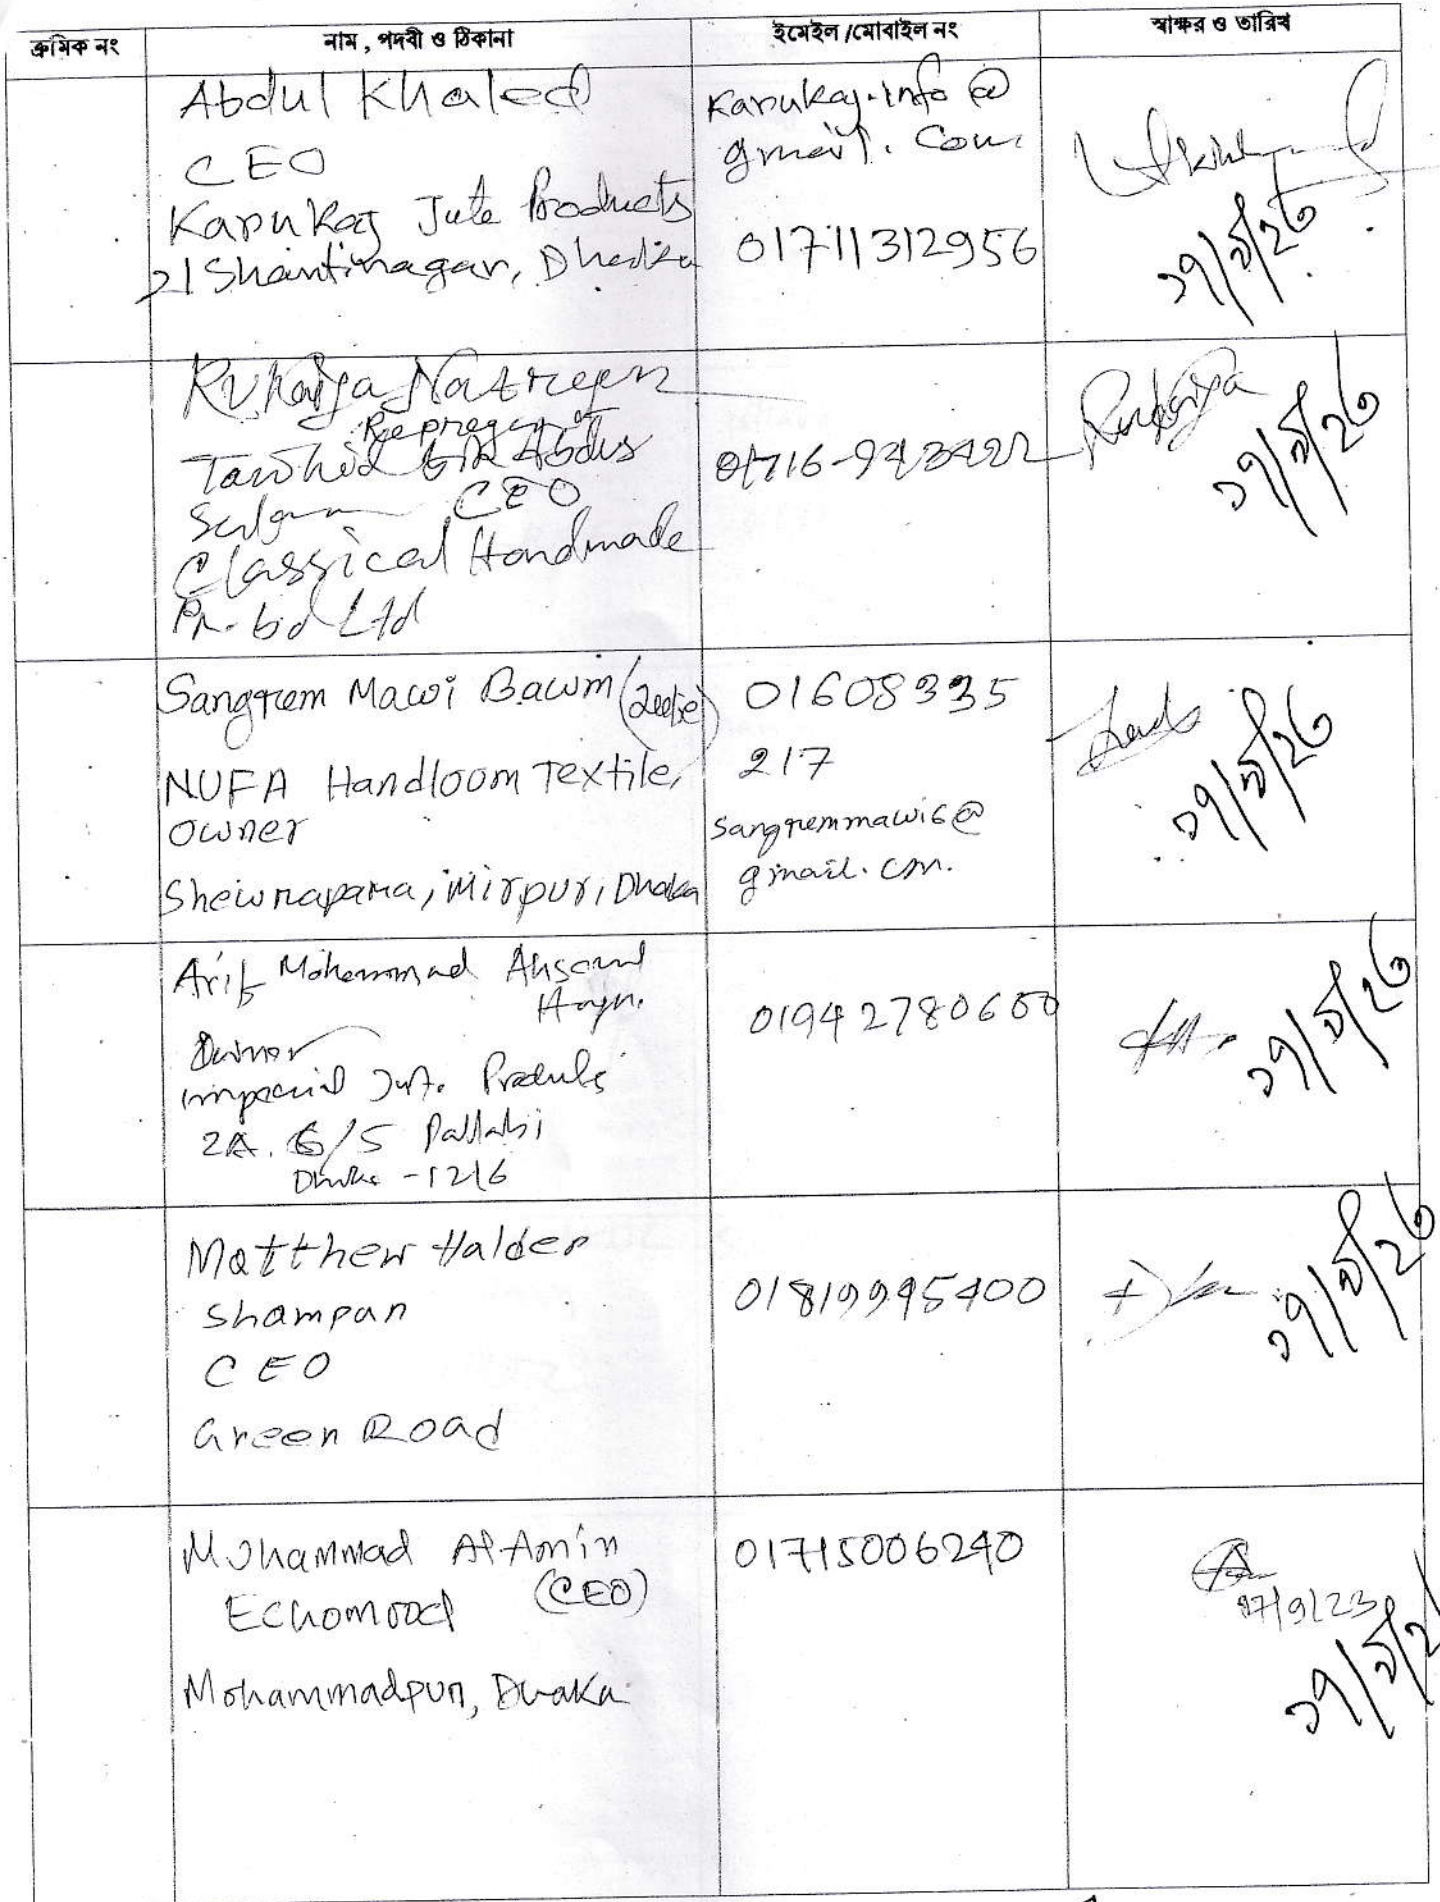 ক্রমিক নং
নাম, পদবী ও ঠিকানা
ইমেইল/মোবাইল নং
স্বাক্ষর ও তারিখ
Abdul Khaled
CEO
Karukaj Jute Products
21 Shantinagar, Dhaka
Karukaj.info@
gmail.com
01711312956
২৭/৯/২৩
Rukaiya Nasreen
Tawhid Bin Abdus
Salam CEO
Classical Handmade
Pr. bd Ltd
Rukaiya
২৭/৯/২৩
Sangrem Mawi Bawm
NUFA Handloom Textile,
owner
Shewrapara, Mirpur, Dhaka
01608335
217
sangremmawi6@
gmail.com.
২৭/৯/২৩
Arif Mohammad Ahsanul
Owner
Imperial Jute Products
2A. 6/5 Pallabi
Dhaka - 1216
01942780600
২৭/৯/২৩
Matthew Halder
Shampan
CEO
Green Road
01819995400
২৭/৯/২৩
Mohammad Al Amin
(CEO)
Mohammadpur, Dhaka
01715006240
27/9/23